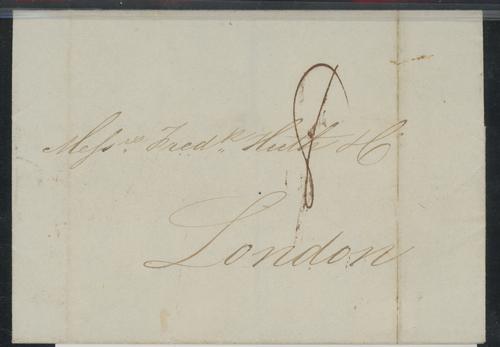 8
Messrs Fredk Huth & Co
London